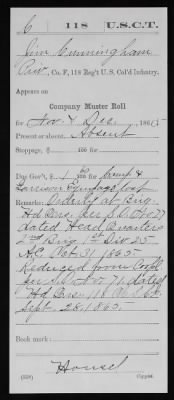 6 | 118 | U.S.C.T.
Jim Cunningham
Pvt., Co. F, 118 Reg't U.S. Col'd Infantry.
Appears on
Company Muster Roll
for Nov. & Dec., 1865
Present or absent, Absent
Stoppage, $ 100 for
Due Gov't, $ 1 100 for Camp &
Garrison Equipage lost
Remarks: Orderly at Brig.
Hd Qrs. per S.O. No 27
dated Head Quarters
2nd Brig 1st Div 25
A.C. Oct 31 1865
Reduced from Corpl
per dated
Hd Qrs. 118
Sept. 28, 1865.
Book mark:
(358) Copyist.